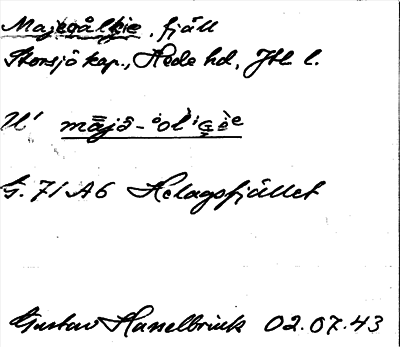 Majegålkie, fjäll
Storsjö kap., Hede hd, Jtl l.
U'
G. 71 A6 Helagsfjället
Gustav Hasselbrink 02.07.43